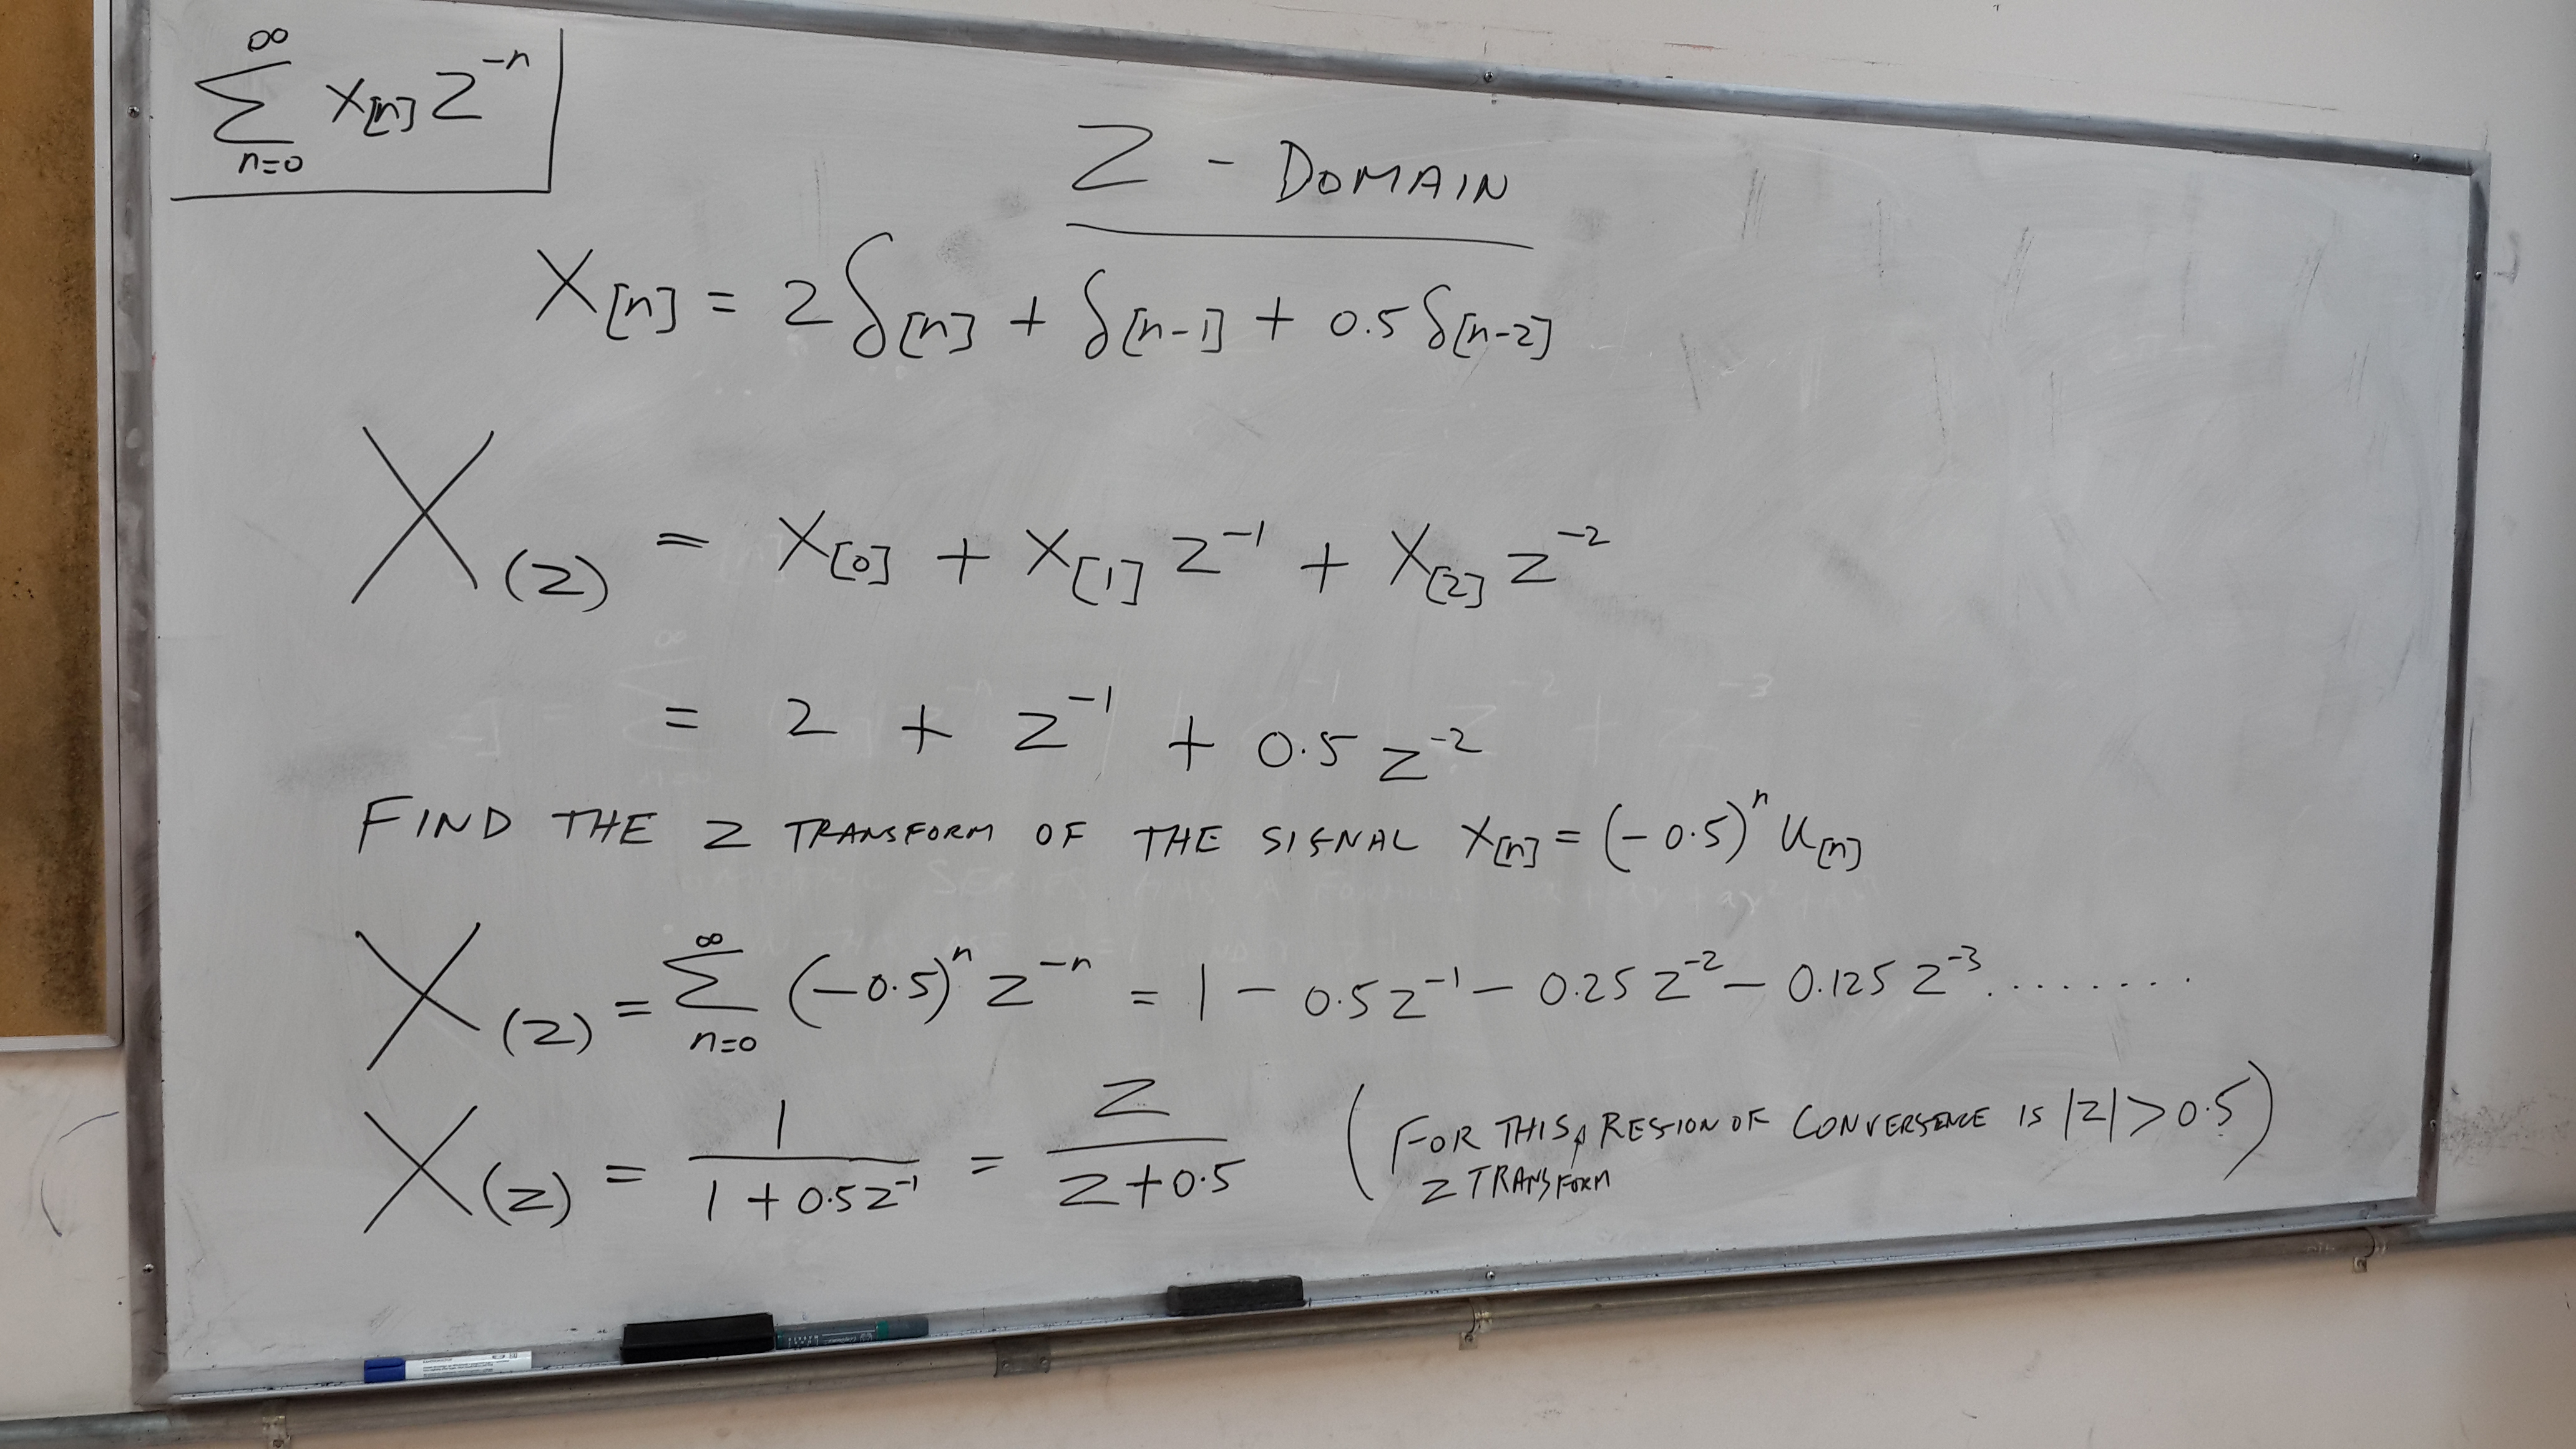 ∞
∑ x[n] z^-n
n=0
Z - DOMAIN
X[n] = 2δ[n] + δ[n-1] + 0.5 δ[n-2]
X(z) = X[0] + X[1] z^-1 + X[2] z^-2
= 2 + z^-1 + 0.5 z^-2
FIND THE Z TRANSFORM OF THE SIGNAL X[n] = (-0.5)^n U[n]
X(z) = ∑_{n=0}^{∞} (-0.5)^n z^-n = 1 - 0.5 z^-1 - 0.25 z^-2 - 0.125 z^-3 ........
X(z) = 1 / (1 + 0.5 z^-1) = z / (z + 0.5) (FOR THIS REGION OF CONVERGENCE IS |z| > 0.5)
Z TRANSFORM